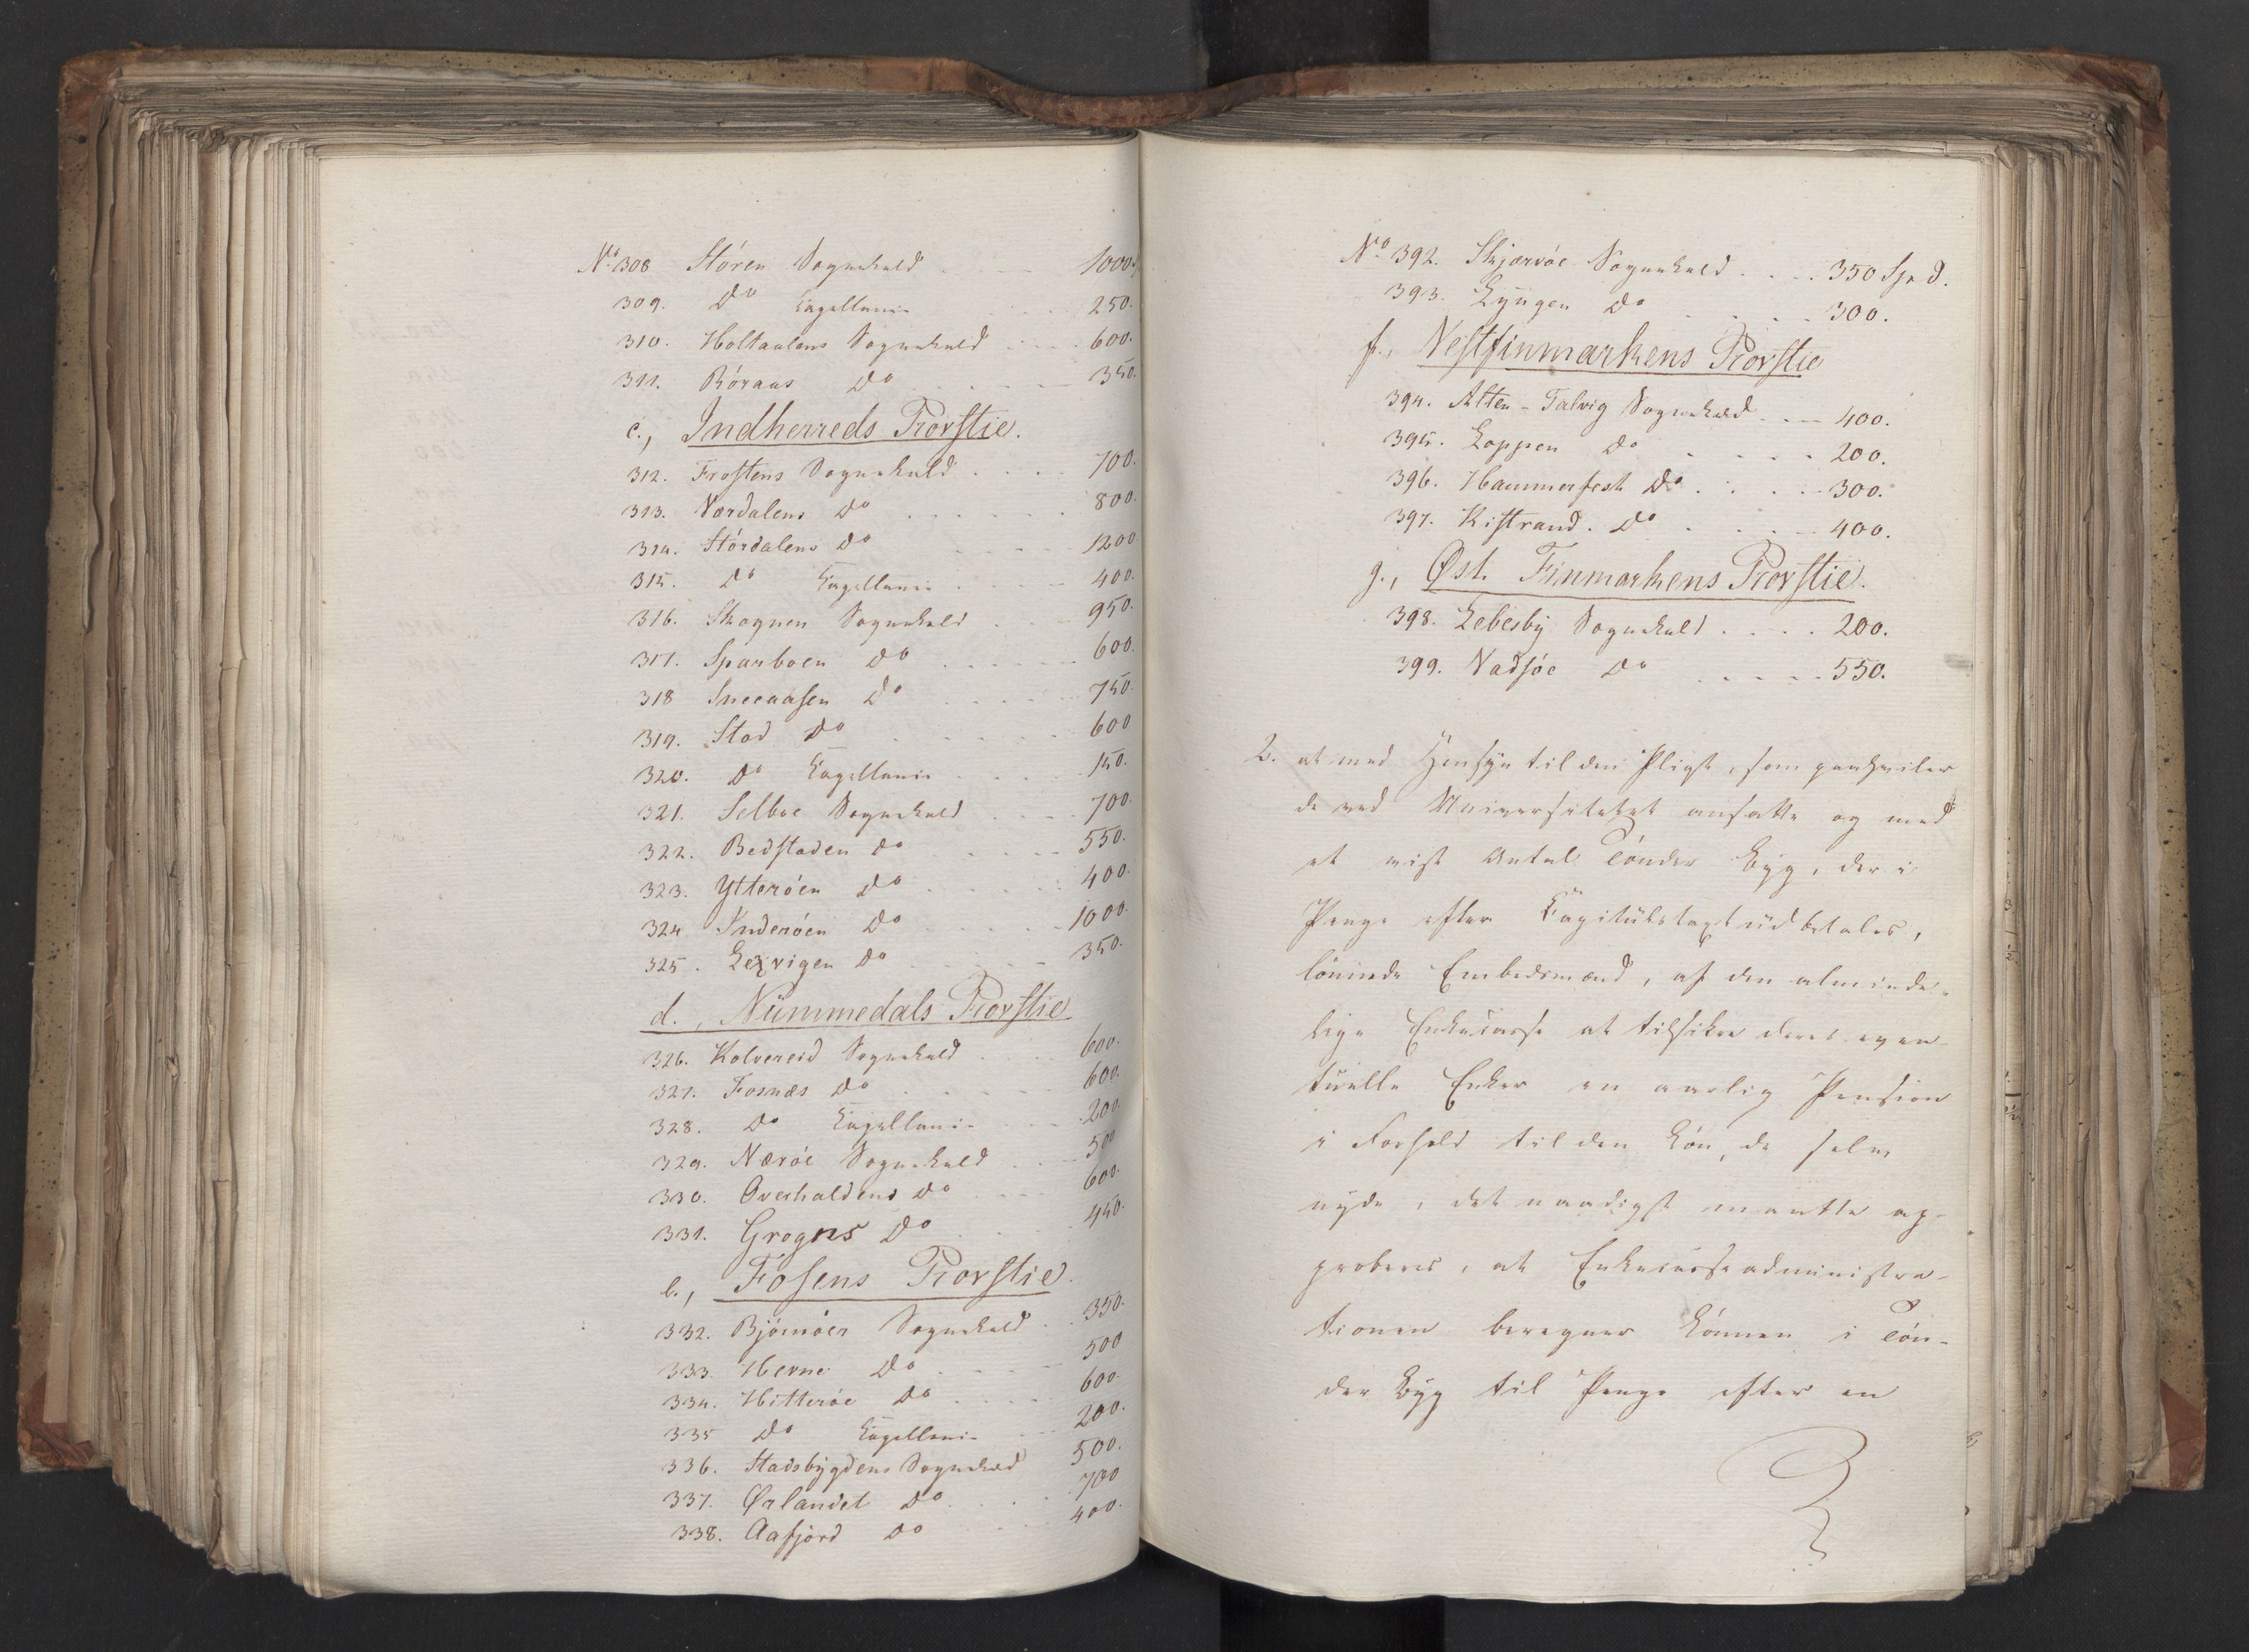 No 308 Stören Sognekald . . . 1000.
309. Do Capellani . . . 250.
310. Holtaalens Sognekald . . . 600.
311. Röraas Do . . . 350.
c., Indherreds Provstie.
312. Frostens Sognekald . . . 700.
313. Værdalens Do . . . 800.
314. Stördalens Do . . . 1200
315. Do Capellani . . . 400.
316. Skognen Sognekald . . . 950.
317. Sparboen Do . . . 600.
318 Sneeaasen Do . . . 750.
319. Stod Do . . . 600
320. Do Capellani . . . 150.
321. Selboe Sognekald . . . 700.
322. Bedstaden Do . . . 550.
323. Ytteröen Do . . . 400.
324 Inderöen Do . . . 1000.
325. Lexvigen Do . . . 350.
d., Nummedals Provstie
326. Kolvereid Sognekald . . . 600.
327. Fosnæs Do . . . 600.
328. Do Capellani . . . 200
329. Nærøe Sognekald . . . 500
330. Overhaldens Do . . . 600.
331. Grogns Do . . . 450.
e., Fosens Provstie.
332. Bjørnöer Sognekald . . 350.
333. Herne Do . . . 500
334. Hitteröe Do . . . 600.
335 Do Capellani . . . 200.
336. Stadsbygdens Sognekald 500.
337. Ørlandet Do . . . 700
338. Aafjord Do . . . 400.
No 392. Skjærvöe Sognekald . . . 350 Spd.
393. Lyngen Do . . . 300.
f., Vestfinmarkens Provstie
394. Alten-Talvig Sognekald . . . 400.
395. Loppen Do . . . 200.
396. Hammerfest Do . . . 300.
397. Kistrand. Do . . . 400.
g., Øst. Finmarkens Provstie.
398. Lebesby Sognekald . . . 200.
399. Vadsöe Do . . . 550.
2. at med Hensyn til den Pligt, som paahviler
de ved Universitetet ansatte og med
et vist Antal Tönder Byg, der i
Penge efter Capitulstaxt udbetales,
lönnede Embedsmænd, af den alminde-
lige Enkecasse at tilsikre deres even-
tuelle Enker en aarlig Pension
i Forhold til den Lön, de selv
nyde, det naadigst maatte ap-
proberes, at Enkecasseadministra-
tionen beregner Lönnen i Tön-
der Byg til Penge efter en